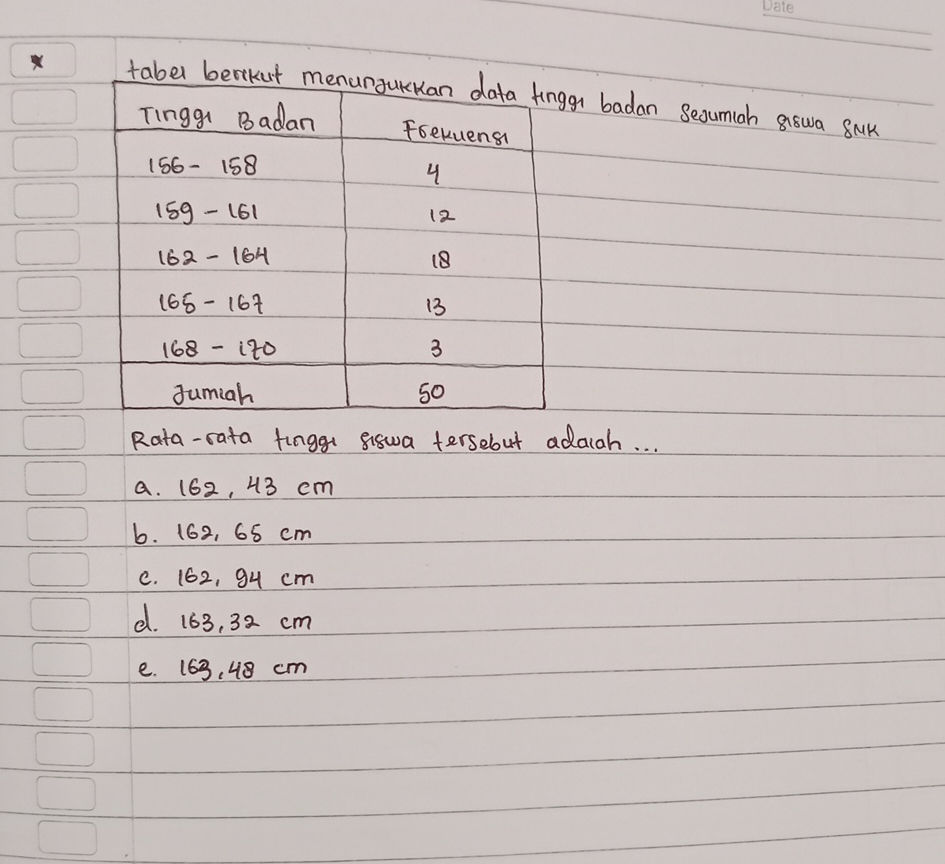 Date
tabel berikut menunjukkan data tinggi badan sejumlah siswa SMK
Tinggi Badan Frekuensi
156 - 158 4
159 - 161 12
162 - 164 18
165 - 167 13
168 - 170 3
Jumlah 50
Rata-rata tinggi siswa tersebut adalah ...
a. 162,43 cm
b. 162,65 cm
c. 162,94 cm
d. 163,32 cm
e. 163,48 cm